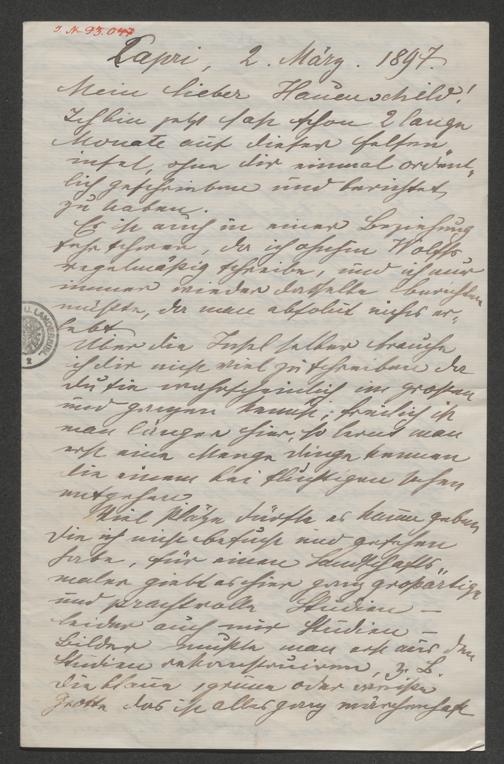 J. N. 93.047
Capri, 2. März. 1897
Mein lieber Hauenschild!
Ich bin jetzt fast schon 2 lange
Monate auf dieser Felsen
insel, ohne dir einmal ordent
lich geschrieben und berichtet
zu haben.
Es ist auch in einer Beziehung
sehr schwer, da ich ohnehin Wolffs
regelmäßig schreibe, und ich nur
immer wieder dasselbe berichten
müßte, da man absolut nichts er-
lebt.
Über die Insel selber brauche
ich dir nicht viel zu schreiben da
du sie wahrscheinlich im großen
und ganzen kennst; freilich ist
man länger hier, so lernt man
erst eine Menge Dinge kennen
die einem bei flüchtigen Sehen
entgehen.
Viel Plätze dürfte es kaum geben
die ich nicht besucht und gesehen
habe, für einen Landschafts-
maler giebt es hier ganz großartige
und prachtvolle Studien –
leider auch nur Studien –
Bilder müßte man erst aus den
Studien rekonstruiren, z. B.
die blaue, grüne oder weiße
Grotte das ist alles ganz märchenhaft